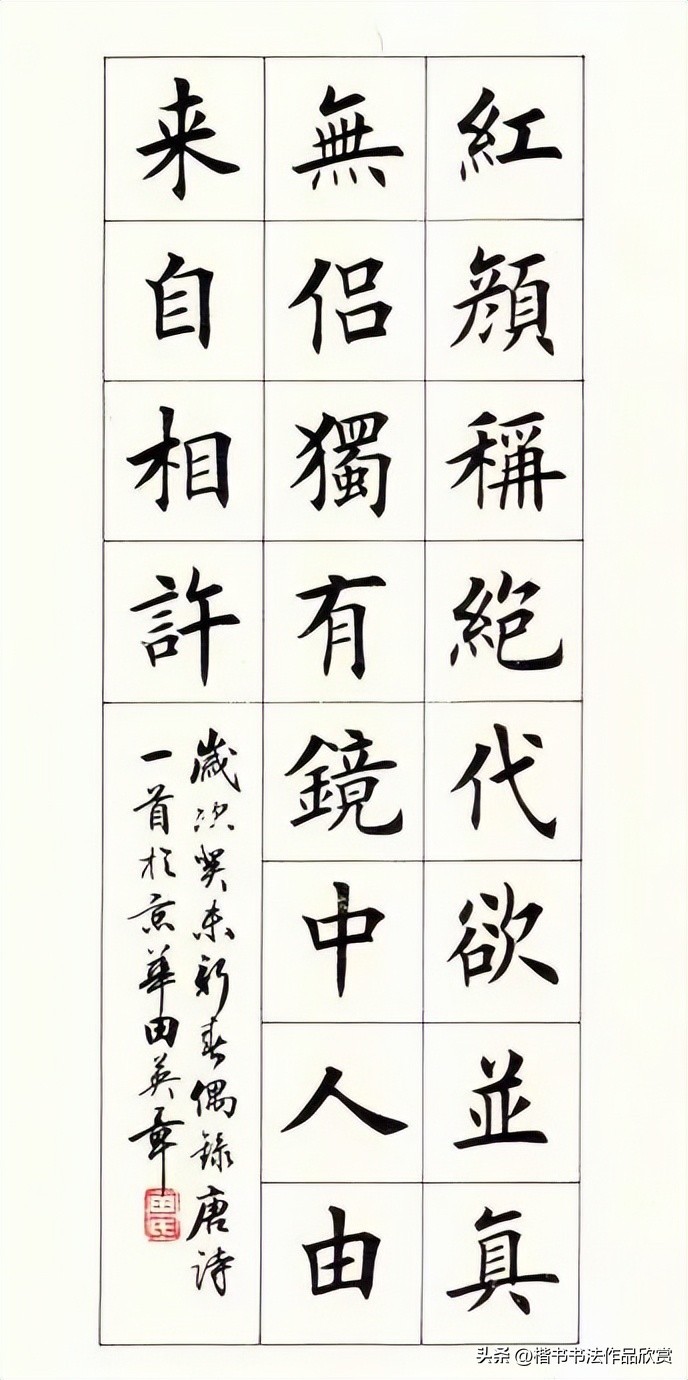 紅顔稱絶代欲並真
無侶獨有鏡中人由
来自相許
歲次癸未新春偶録唐詩
一首於京華田英章
田氏
头条 @楷书书法作品欣赏